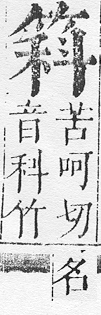 苦呵切
音科竹
名